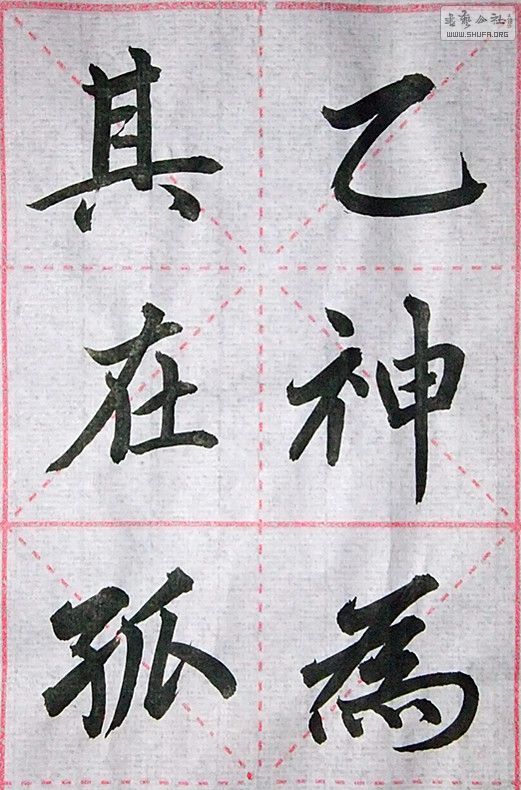 乙神為
其在孤
書藝公社
WWW.SHUFA.ORG